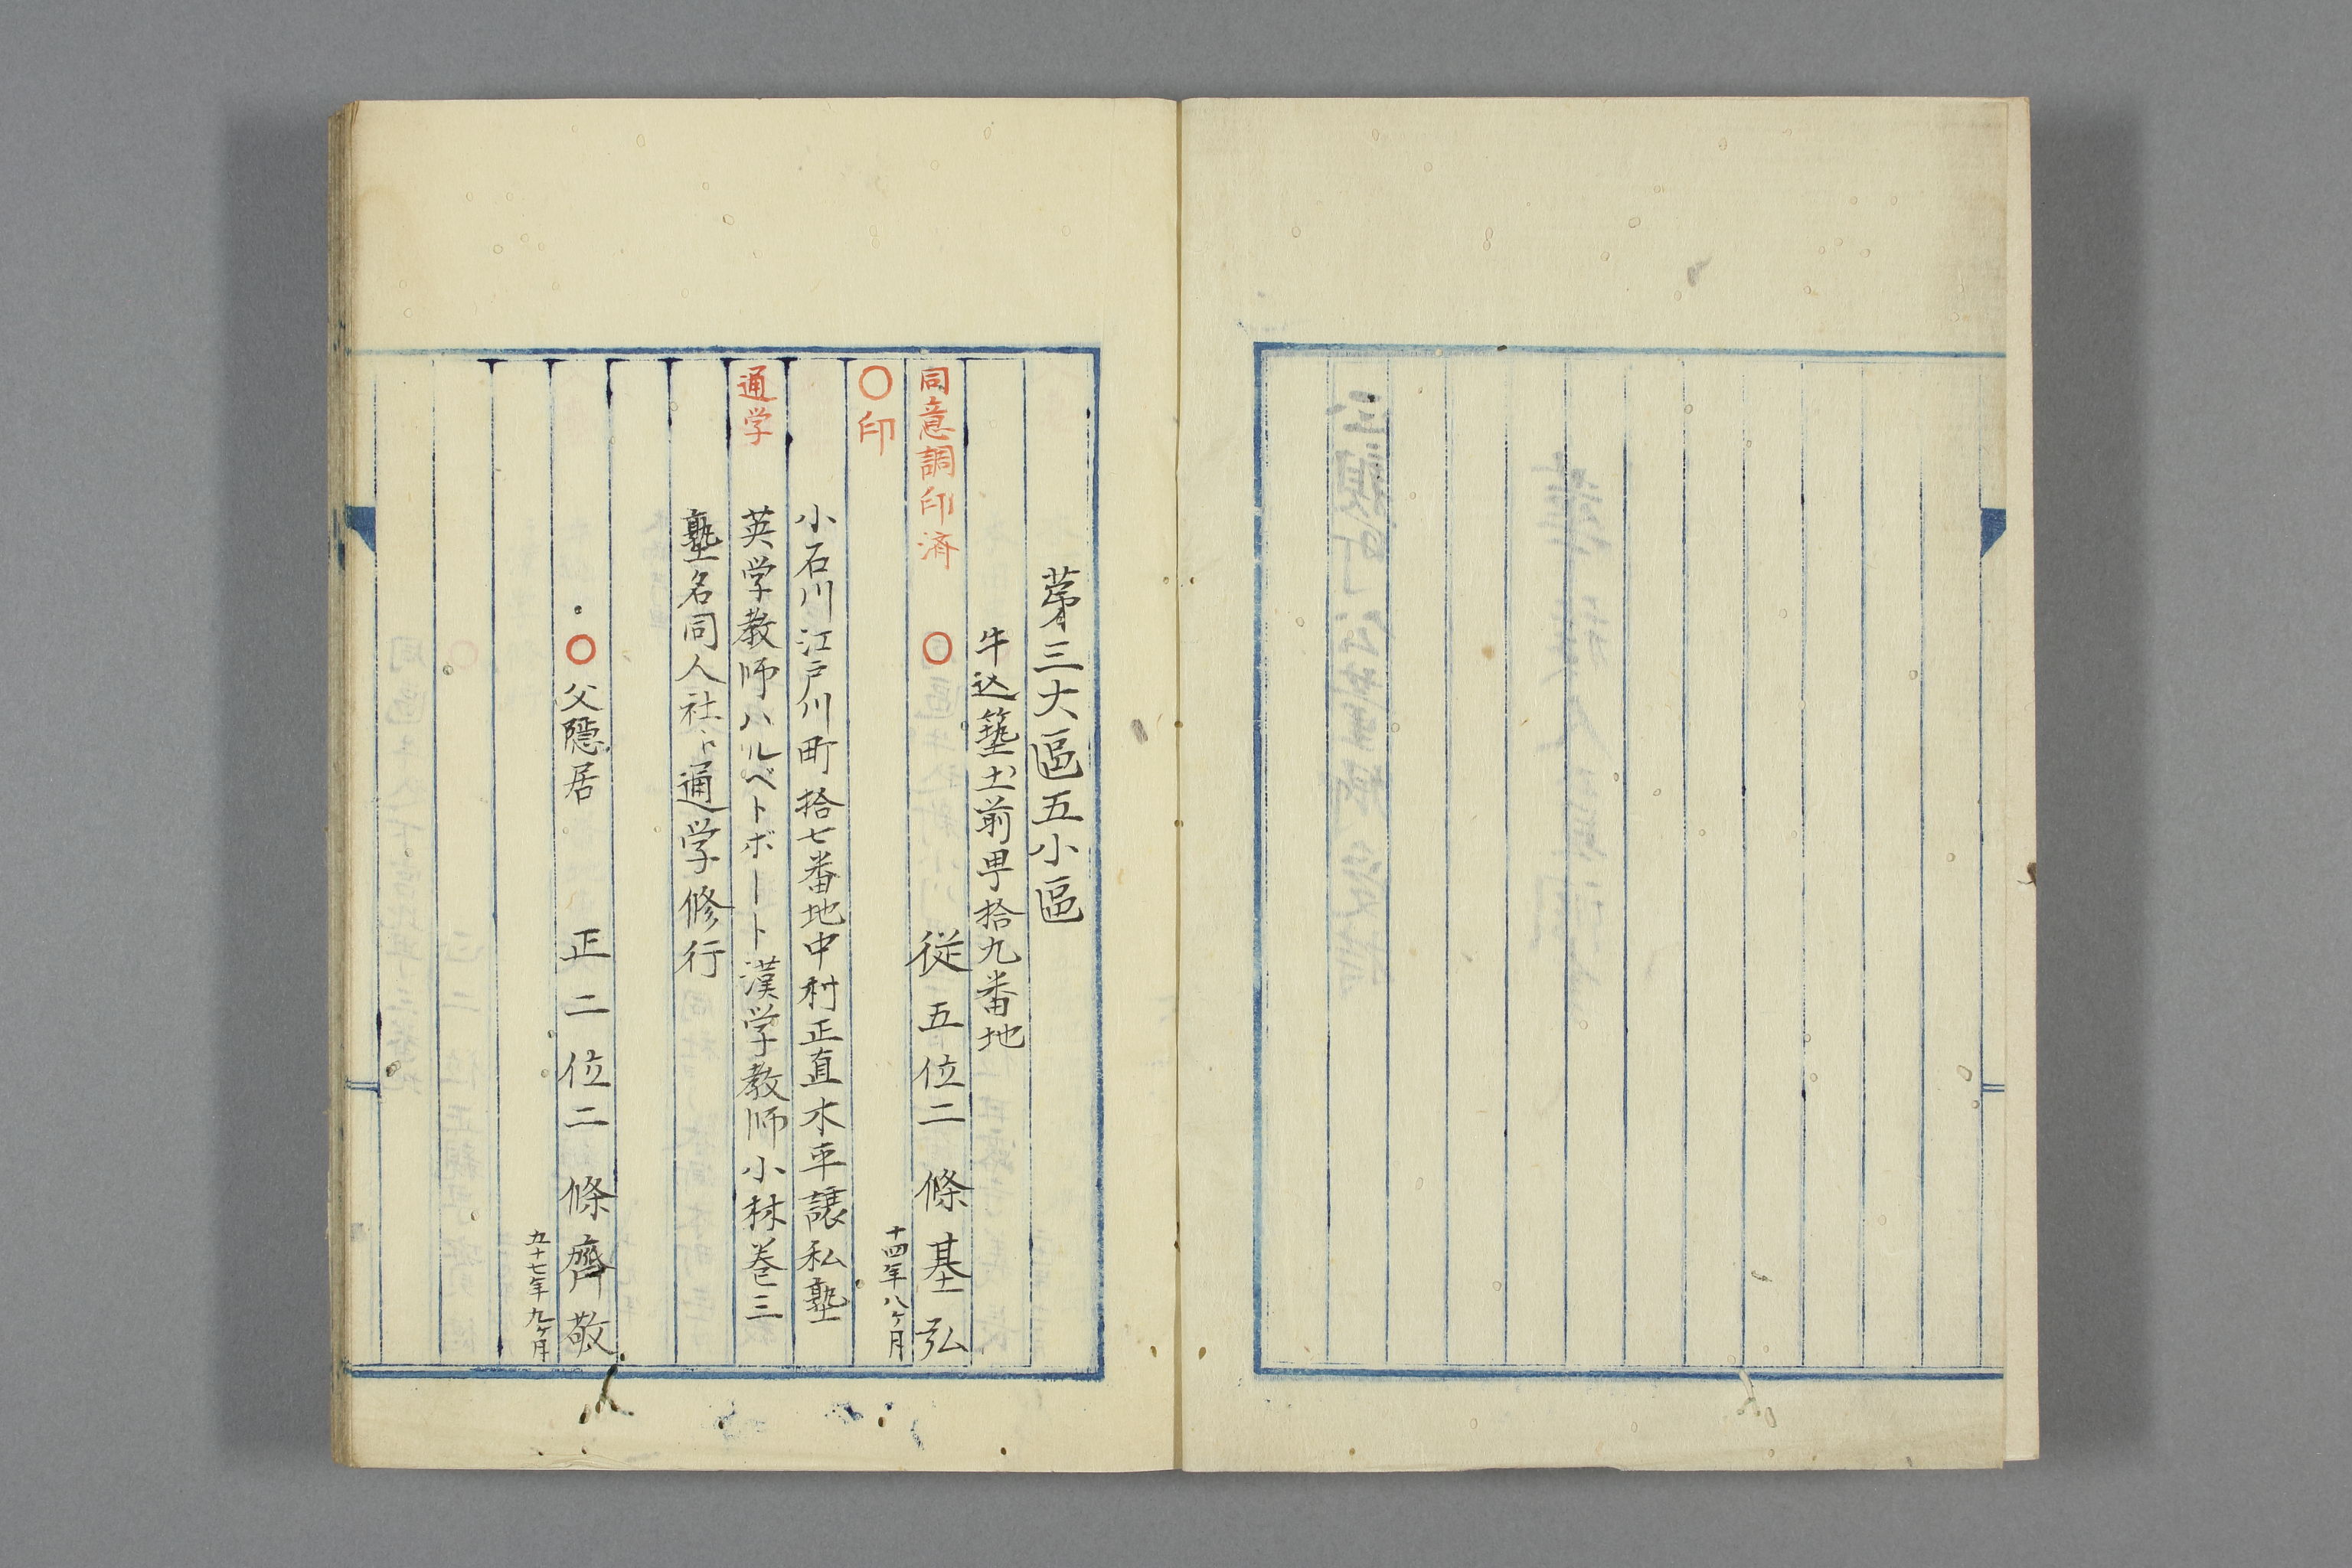 第三大區五小區
牛込築土前甲拾九番地
同意調印済 〇 従五位二條基弘
〇印 十四年八ヶ月
小石川江戸川町拾七番地中村正直水平譲私塾
通学 英学教師ハルベトボート漢学教師小林巻三
塾名同人社ニ而通学修行
〇父隠居 正二位二條齊敬
五十七年九ヶ月